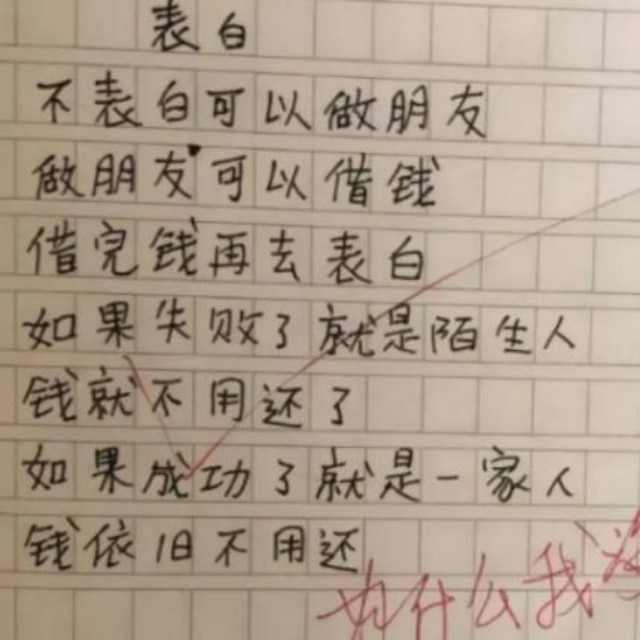 表白
不表白可以做朋友
做朋友可以借钱
借完钱再去表白
如果失败了就是陌生人
钱就不用还了
如果成功了就是一家人
钱依旧不用还
为什么我